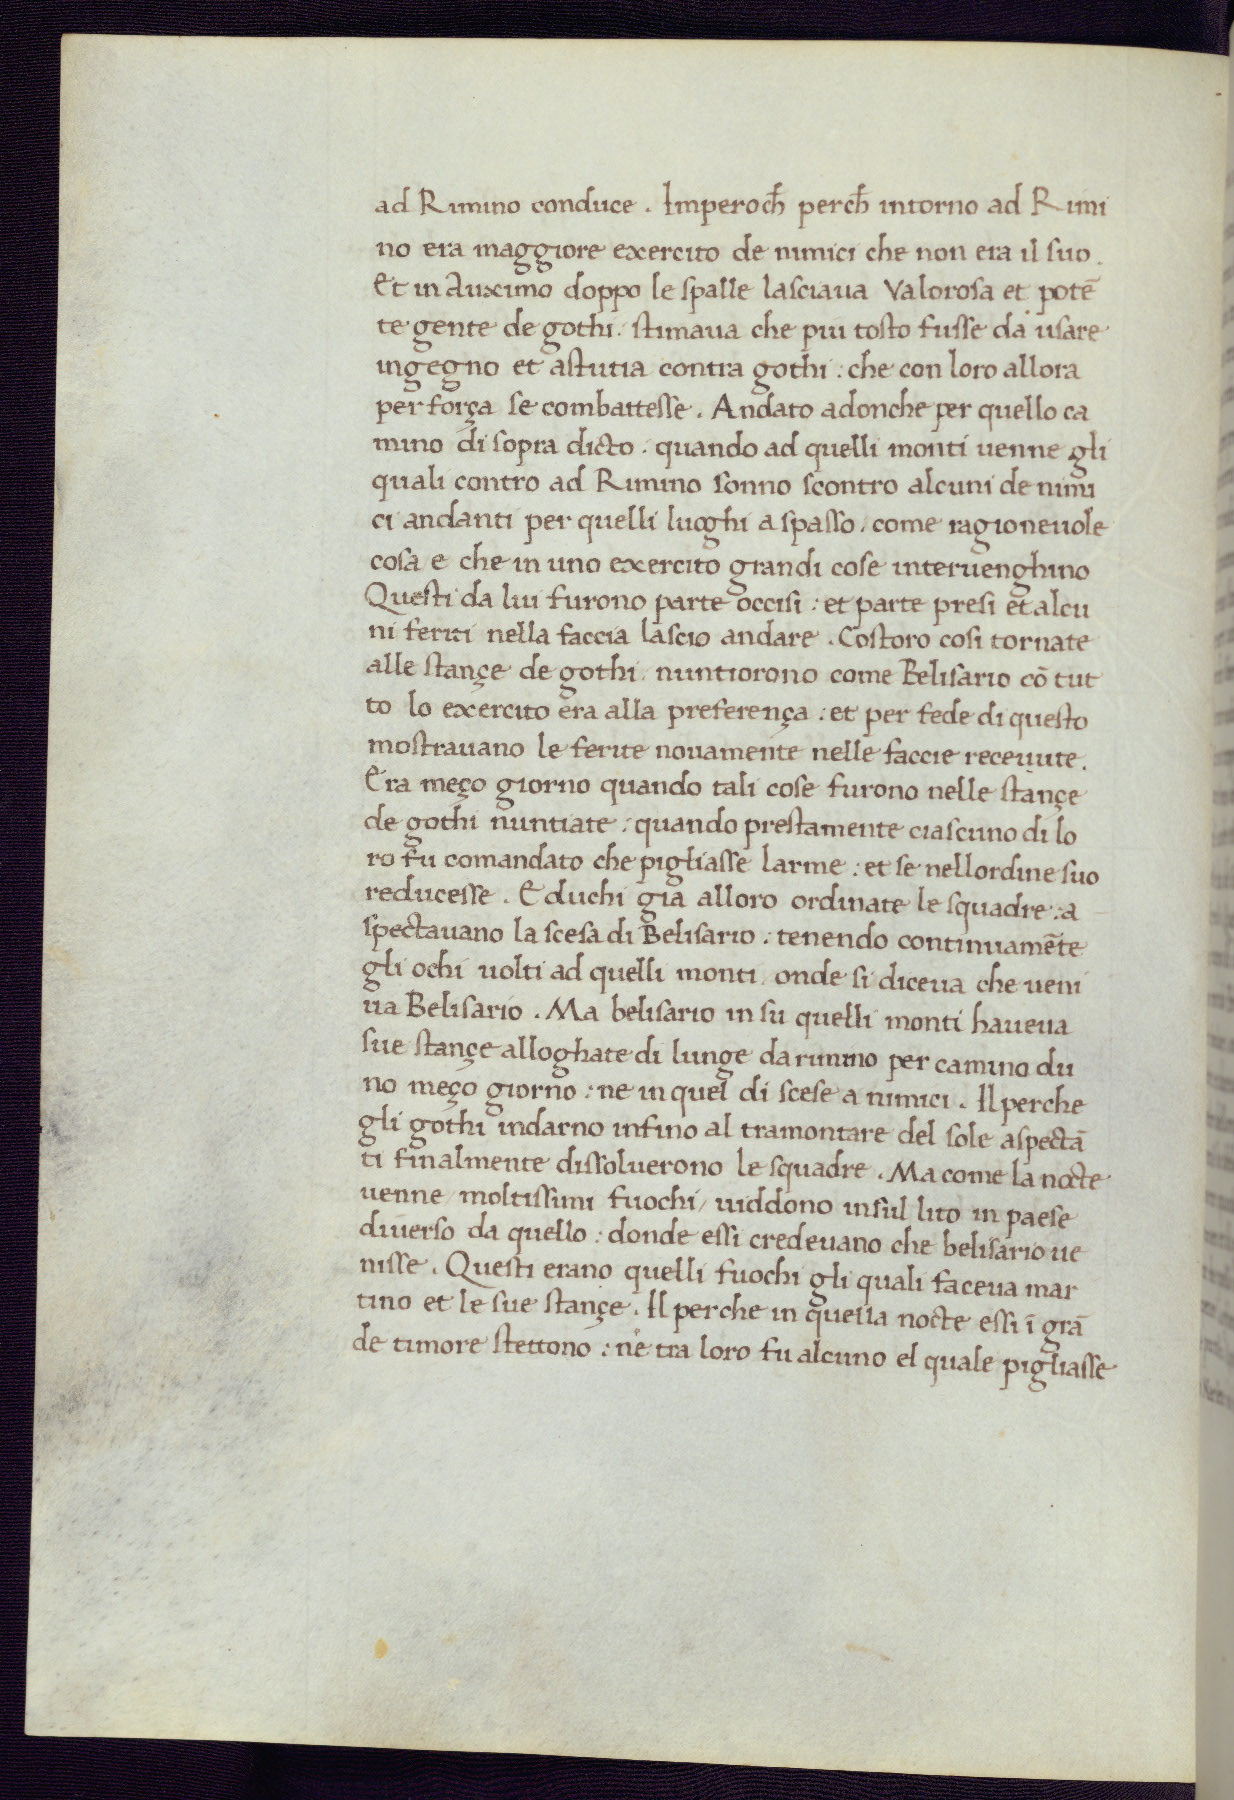 ad Rimino conduce . Imperoch̄ perch̄ intorno ad Rimi
no era maggiore exercito de nimici che non era il suo .
Et in Auximo doppo le spalle lasciaua Valorosa et potē
te gente de gothi . stimaua che piu tosto fusse da usare
ingegno et astutia contra gothi : che con loro allora
per força se combattesse . Andato adonche per quello ca
mino di sopra dicto . quando ad quelli monti uenne gli
quali contro ad Rimino sonno scontro alcuni de nimi
ci andanti per quelli luoghi a spasso . come ragioneuole
cosa e che in uno exercito grandi cose interuenghino
Questi da lui furono parte occisi : et parte presi et alcu
ni feriti nella faccia lascio andare . Costoro cosi tornate
alle stançe de gothi . nuntiorono come Belisario cō tut
to lo exercito era alla preferença : et per fede di questo
mostrauano le ferite nouamente nelle faccie receuute .
Era meço giorno quando tali cose furono nelle stançe
de gothi nuntiate : quando prestamente ciascuno di lo
ro fu comandato che pigliasse larme : et se nellordine suo
reducesse . E duchi gia alloro ordinate le squadre : a
spectauano la scesa di Belisario : tenendo continuamēte
gli ochi uolti ad quelli monti . onde si diceua che ueni
ua Belisario . Ma belisario in su quelli monti haueua
sue stançe alloghate di lunge da rimino per camino du
no meço giorno : ne in quel di scese a nimici . Il perche
gli gothi indarno infino al tramontare del sole aspectā
ti finalmente dissoluerono le squadre . Ma come la nocte
uenne / moltissimi fuochi / uiddono insul lito in paese
diuerso da quello : donde essi credeuano che belisario ue
nisse . Questi erano quelli fuochi gli quali faceua mar
tino et le sue stançe . Il perche in quella nocte essi ī grā
de timore stettono : ne tra loro fu alcuno el quale pigliasse